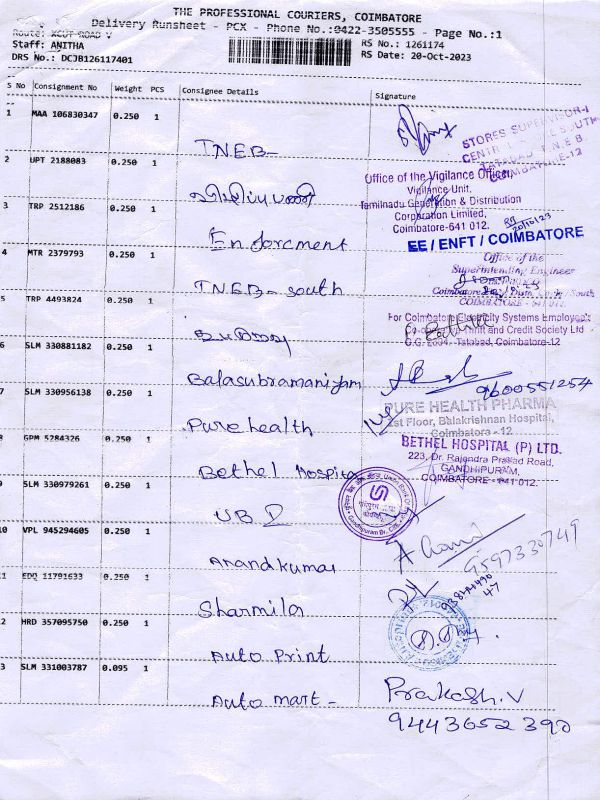 THE PROFESSIONAL COURIERS, COIMBATORE
Delivery Runsheet - PCX - Phone No.:0422-3505555 - Page No.:1
Route: XCUT ROAD V
Staff: ANITHA
RS No.: 1261174
DRS No.: DCJB126117401
RS Date: 20-Oct-2023
S No Consignment No Weight PCS Consignee Details Signature
1 MAA 106830347 0.250 1
TNEB-
STORES SUPERVISOR-I
TATABAD T.N.E.B
COIMBATORE-12
2 UPT 2188083 0.250 1
விழிப்பு பணி
Office of the Vigilance Officer
Vigilance Unit,
Tamilnadu Generation & Distribution
Corporation Limited,
Coimbatore-641 012.
3 TRP 2512186 0.250 1
Endorcment
20/10/23
EE / ENFT / COIMBATORE
4 MTR 2379793 0.250 1
TNEB-south
Office of the
Superintending Engineer
5 TRP 4493824 0.250 1
For Coimbatore Electricity Systems Employees
Co-op Thrift and Credit Society Ltd
Tatabad, Coimbatore-12
6 SLM 330881182 0.250 1
Balasubramaniyam
9600551254
7 SLM 330956138 0.250 1
Pure health
PURE HEALTH PHARMA
1st Floor, Balakrishnan Hospital,
Coimbatore - 12
8 GPM 5284326 0.250 1
Bethel Hospital
BETHEL HOSPITAL (P) LTD.
223, Dr. Rajendra Prasad Road,
GANDHIPURAM,
COIMBATORE - 641 012.
9 SLM 330979261 0.250 1
UBI
10 VPL 945294605 0.250 1
Anandkumar
A Anand
9597330749
11 EDQ 11791633 0.250 1
Sharmila
12 HRD 357095750 0.250 1
Auto Print
13 SLM 331003787 0.095 1
Auto mart -
Prakash.V
9443652390